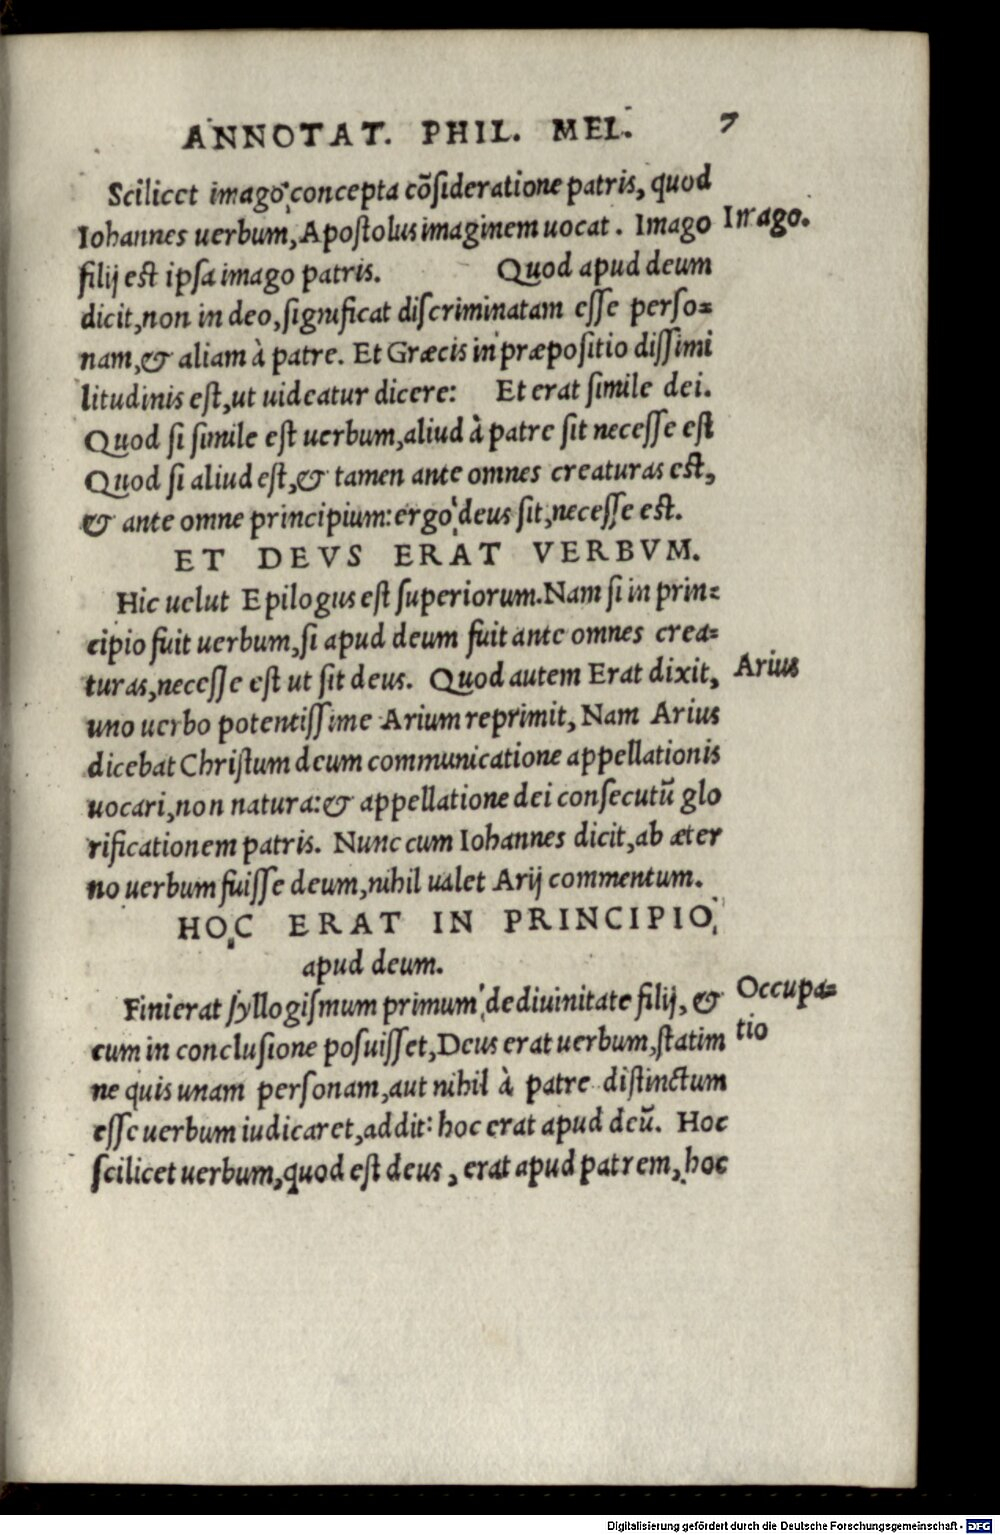 ANNOTAT. PHIL. MEL. 7
Scilicet imago concepta cõsideratione patris, quod
Iohannes uerbum, Apostolus imaginem uocat. Imago Imago.
filij est ipsa imago patris. Quod apud deum
dicit, non in deo, significat discriminatam esse perso=
nam, & aliam à patre. Et Græcis in præpositio dissimi
litudinis est, ut uideatur dicere: Et erat simile dei.
Quod si simile est uerbum, aliud à patre sit necesse est
Quod si aliud est, & tamen ante omnes creaturas est,
& ante omne principium: ergo deus sit, necesse est.
ET DEVS ERAT VERBVM.
Hic uelut Epilogus est superiorum. Nam si in prin=
cipio fuit uerbum, si apud deum fuit ante omnes crea=
turas, necesse est ut sit deus. Quod autem Erat dixit, Arius
uno uerbo potentissime Arium reprimit, Nam Arius
dicebat Christum deum communicatione appellationis
uocari, non natura: & appellatione dei consecutũ glo
rificationem patris. Nunc cum Iohannes dicit, ab æter
no uerbum fuisse deum, nihil ualet Arij commentum.
HOC ERAT IN PRINCIPIO
apud deum.
Finierat syllogismum primum de diuinitate filij, & Occupa=
cum in conclusione posuisset, Deus erat uerbum, statim tio
ne quis unam personam, aut nihil à patre distinctum
esse uerbum iudicaret, addit: hoc erat apud deũ. Hoc
scilicet uerbum, quod est deus, erat apud patrem, hoc
Digitalisierung gefördert durch die Deutsche Forschungsgemeinschaft - DFG